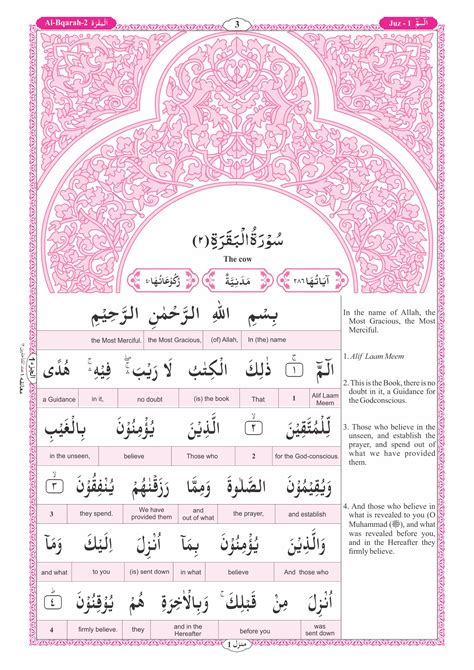 Al-Bqarah-2 البقرة
3
Juz - 1 الٓمّٓ
سُوْرَةُ الْبَقَرَةِ (٢)
The cow
اٰيَاتُهَا ٢٨٦ مَدَنِيَّةٌ رُكُوْعَاتُهَا ٤٠
بِسْمِ اللهِ الرَّحْمٰنِ الرَّحِيْمِ
the Most Merciful. the Most Gracious, (of) Allah, In (the) name
الٓمّٓ ١ ذٰلِكَ الْكِتٰبُ لَا رَيْبَ فِيْهِ هُدًى
a Guidance in it, no doubt (is) the book That 1 Alif Laam Meem
لِّلْمُتَّقِيْنَ ٢ الَّذِيْنَ يُؤْمِنُوْنَ بِالْغَيْبِ
in the unseen, believe Those who 2 for the God-conscious.
وَيُقِيْمُوْنَ الصَّلٰوةَ وَمِمَّا رَزَقْنٰهُمْ يُنْفِقُوْنَ ٣
3 they spend. We have provided them and out of what the prayer, and establish
وَالَّذِيْنَ يُؤْمِنُوْنَ بِمَا اُنْزِلَ اِلَيْكَ وَمَا
and what to you (is) sent down in what believe And those who
اُنْزِلَ مِنْ قَبْلِكَ وَبِالْاٰخِرَةِ هُمْ يُوْقِنُوْنَ ٤
4 firmly believe. they and in the Hereafter before you was sent down
In the name of Allah, the
Most Gracious, the Most
Merciful.
1. Alif Laam Meem
2. This is the Book, there is no
doubt in it, a Guidance for
the Godconscious.
3. Those who believe in the
unseen, and establish the
prayer, and spend out of
what we have provided
them.
4. And those who believe in
what is revealed to you (O
Muhammad (ﷺ), and what
was revealed before you,
and in the Hereafter they
firmly believe.
الجزء ١
منزل 1